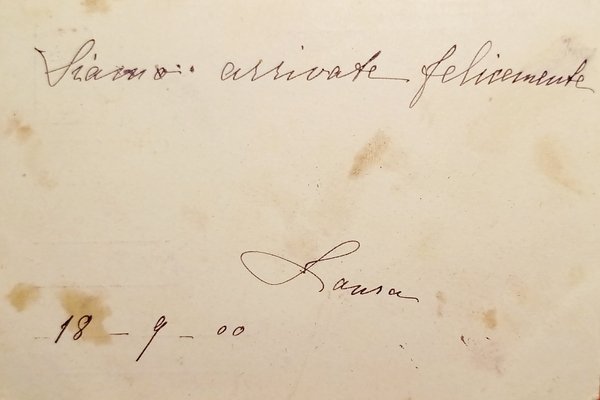 Siamo arrivate felicemente
Laura
18 - 9 - 00